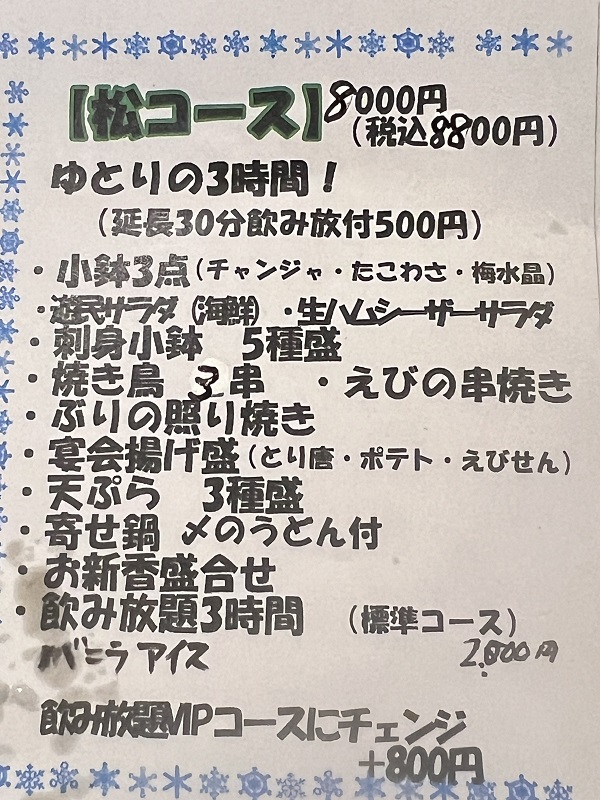 【松コース】8000円
(税込8800円)
ゆとりの3時間！
(延長30分飲み放付500円)
・小鉢3点(チャンジャ・たこわさ・梅水晶)
・遊民サラダ(海鮮)・生ハムシーザーサラダ
・刺身小鉢 5種盛
・焼き鳥 3串 ・えびの串焼き
・ぶりの照り焼き
・宴会揚げ盛(とり唐・ポテト・えびせん)
・天ぷら 3種盛
・寄せ鍋 〆のうどん付
・お新香盛合せ
・飲み放題3時間 (標準コース)
バニラアイス 2,000円
飲み放題VIPコースにチェンジ
+800円